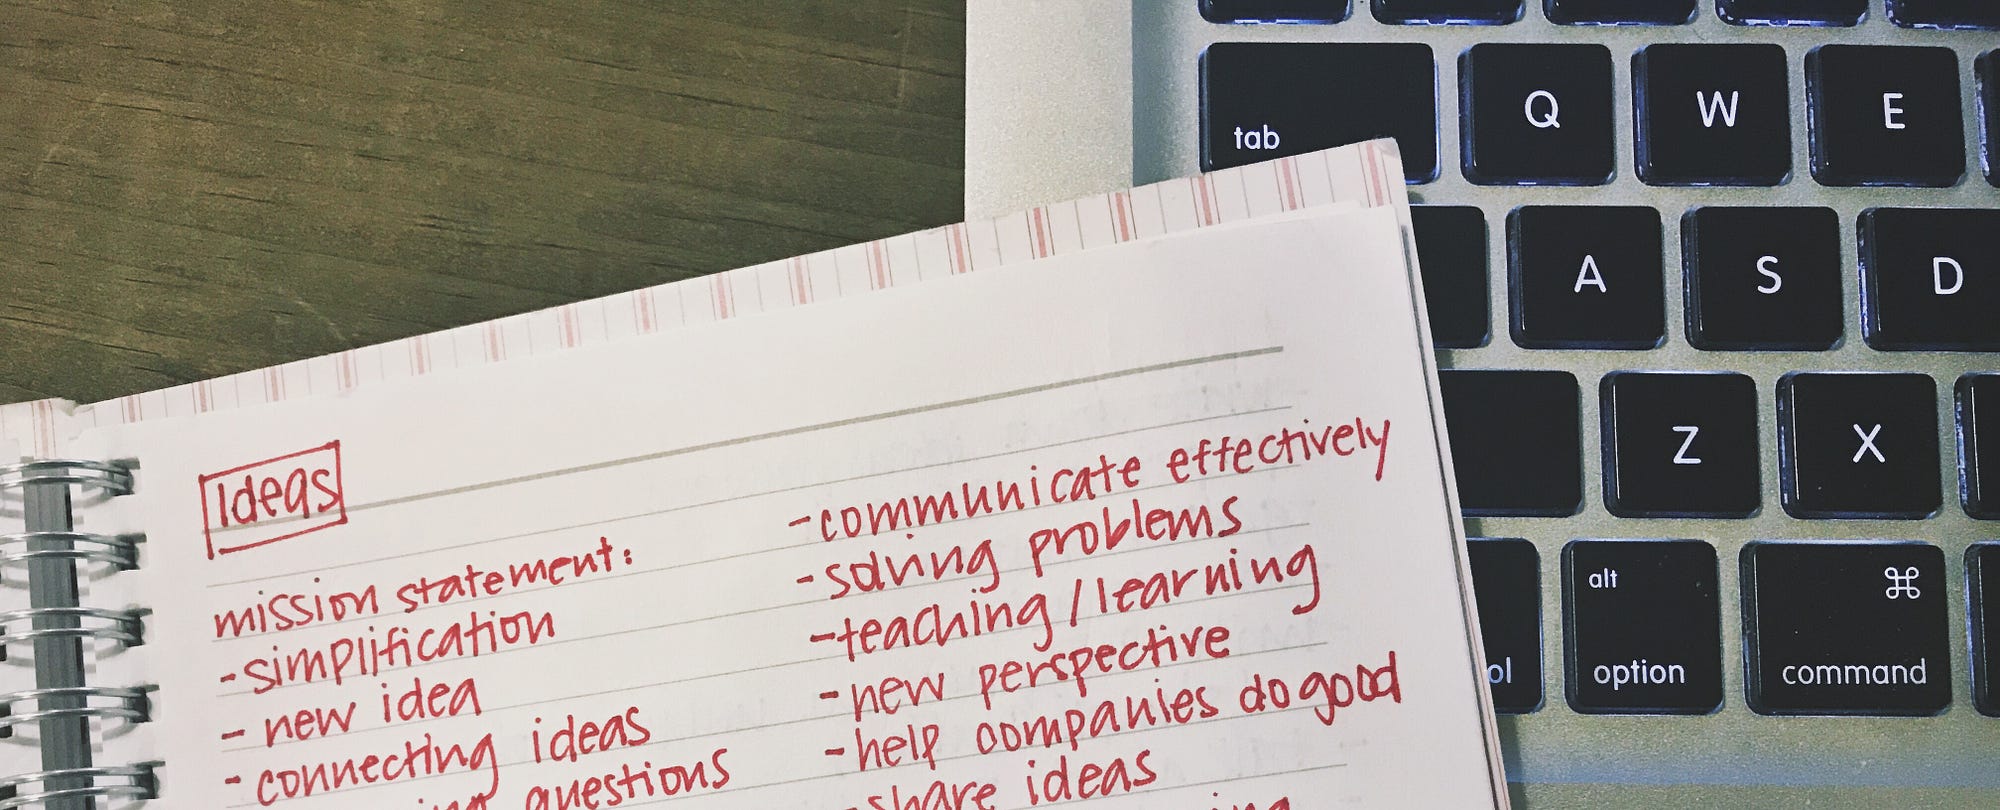 Ideas
mission statement:
-simplification
- new idea
-connecting ideas
questions
-communicate effectively
-solving problems
-teaching/learning
-new perspective
-help companies do good
-share ideas
tab
Q
W
E
A
S
D
Z
X
alt
option
⌘
command